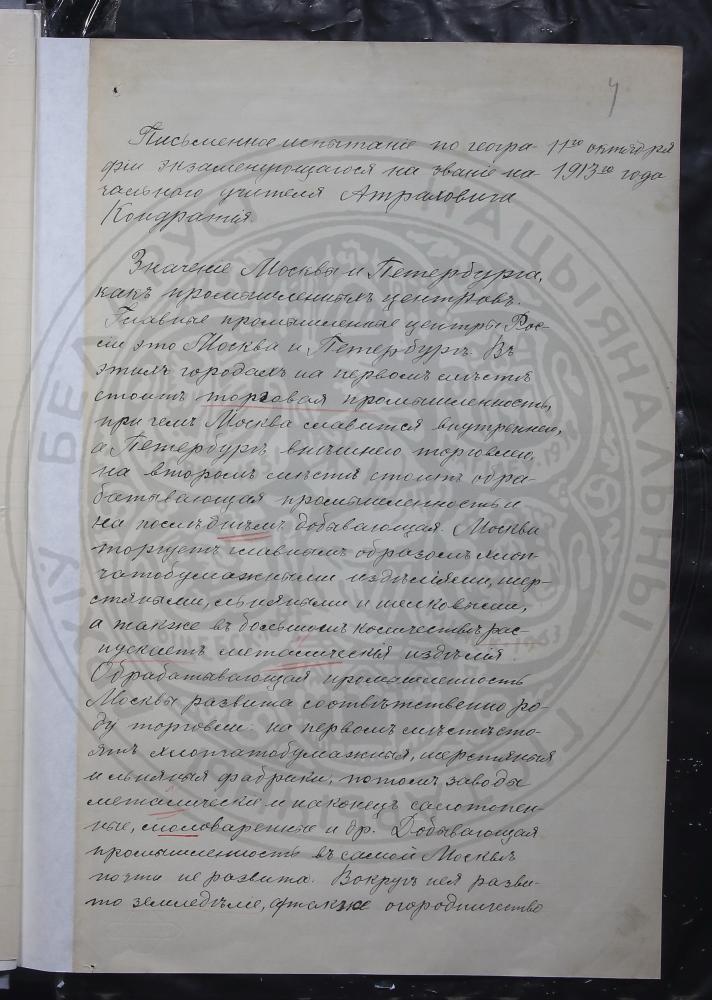 4
Письменное испытаніе по геогра- 11го октября
фіи экзаменующагося на званіе на- 1913го года
чальнаго учителя Атраховича
Кондратія.
Значеніе Москвы и Петербурга,
какъ промышленныхъ центровъ.
Главные промышленные центры Рос-
сіи это Москва и Петербургъ. Въ
этихъ городахъ на первомъ мѣстѣ
стоитъ торговая промышленность,
причемъ Москва славится внутренней,
а Петербургъ внѣшнею торговлею,
на второмъ мѣстѣ стоитъ обра-
батывающая промышленность и
на послѣднѣмъ добывающая. Москва
торгуетъ главнымъ образомъ хлоп-
чатобумажными издѣліями, шер-
стяными, льняными и шелковыми,
а также въ большомъ количествѣ рас-
пускаетъ металическія издѣлія.
Обрабатывающая промышленность
Москвы развита соотвѣтственно ро-
ду торговли: на первомъ мѣстѣ сто-
ятъ хлопчатобумажныя, шерстяныя
и льняныя фабрики, потомъ заводы
металическіе и наконецъ салотопен-
ные, мыловаренные и др. Добывающая
промышленность въ самой Москвѣ
почти не развита. Вокругъ нея разви-
то земледѣліе, а также огородничество